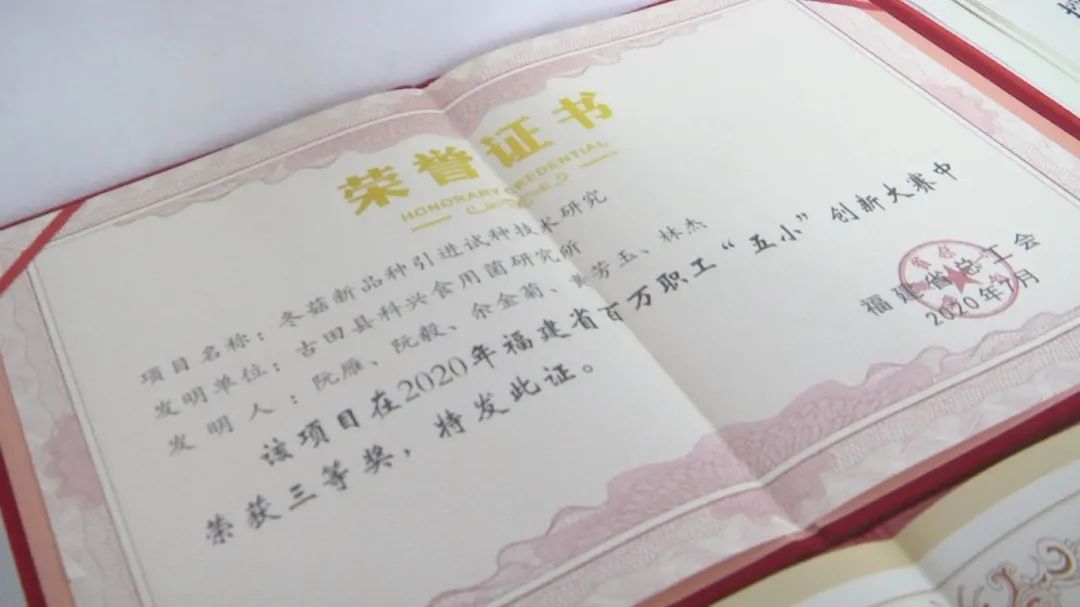 荣誉证书
HONORARY CREDENTIAL
项目名称：冬菇新品种引进试种技术研究
发明单位：古田县科兴食用菌研究所
发明人：阮雁、阮毅、余金菊、黄芳玉、林杰
该项目在2020年福建省百万职工“五小”创新大赛中
荣获三等奖，特发此证。
福建省总工会
2020年7月